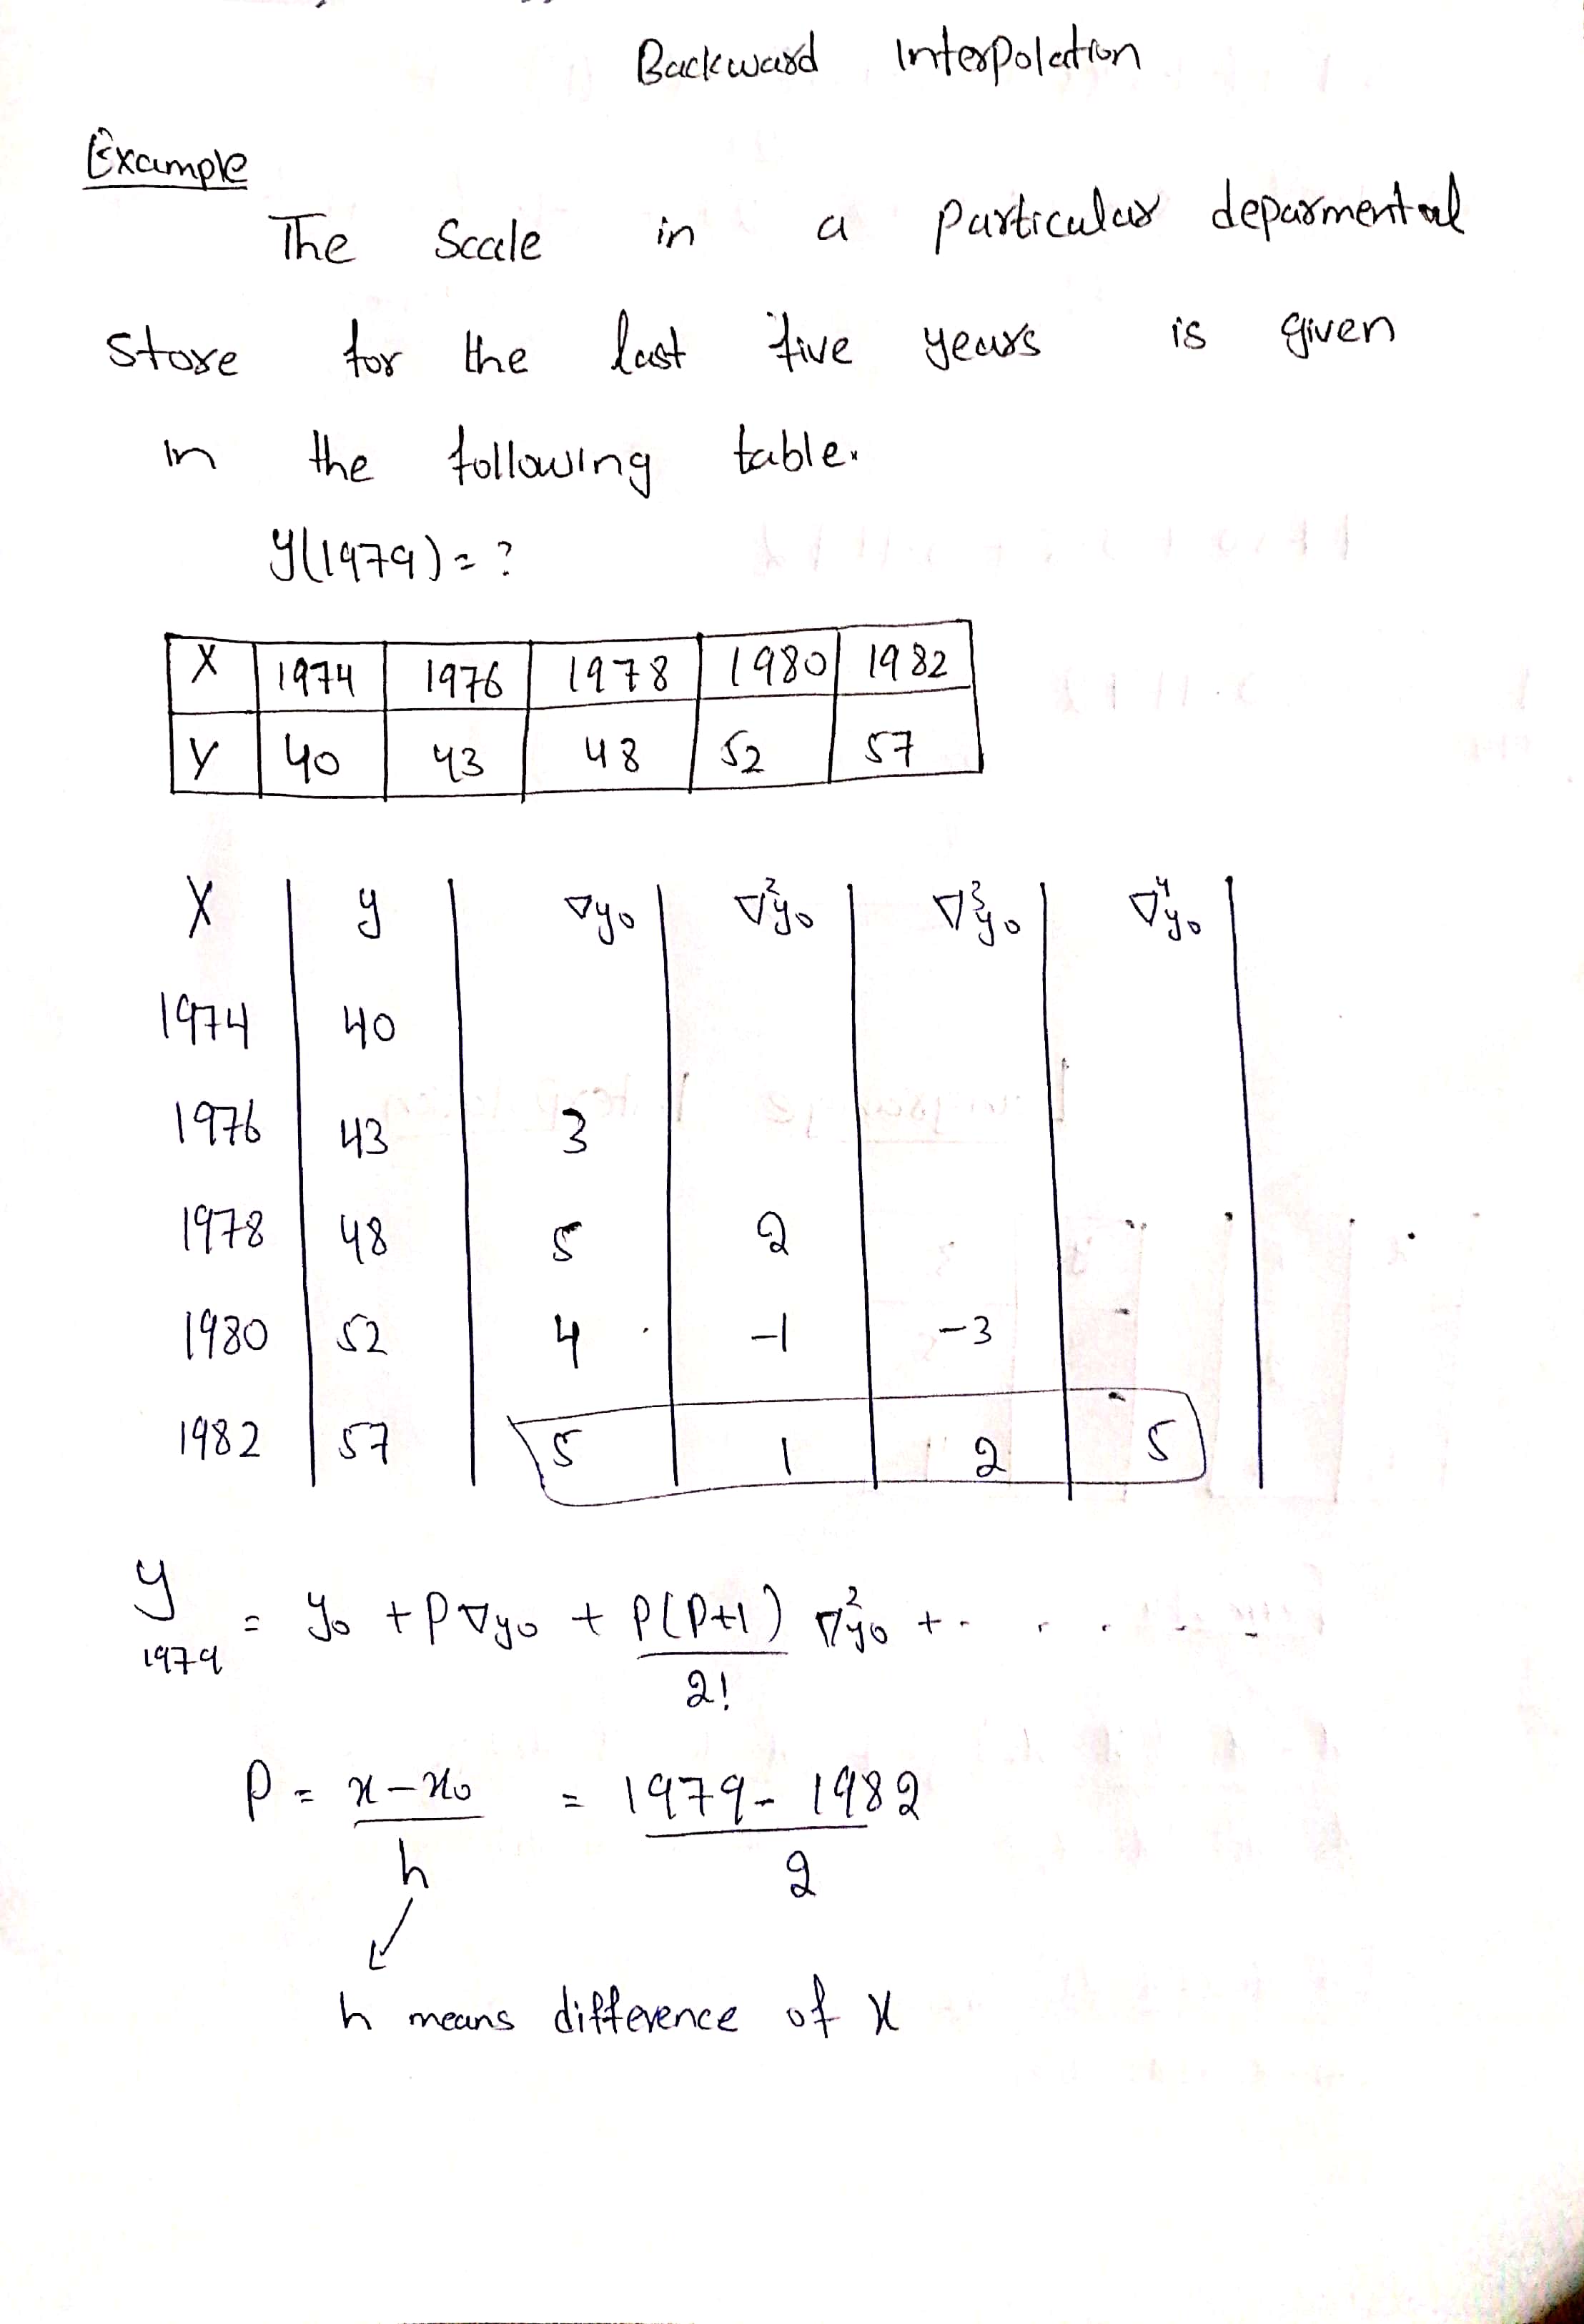 Backward Interpolation
Example
The Scale in a particular deparmental
store for the last five years is given
in the following table.
y(1979) = ?
X 1974 1976 1978 1980 1982
Y 40 43 48 52 57
X y ∇y₀ ∇²y₀ ∇³y₀ ∇⁴y₀
1974 40
1976 43 3
1978 48 5 2
1980 52 4 -1 -3
1982 57 5 1 2 5
y₁₉₇₉ = y₀ + P∇y₀ + P(P+1)/2! ∇²y₀ + . . . . . .
P = x-x₀/h = 1979-1982/2
h means difference of x